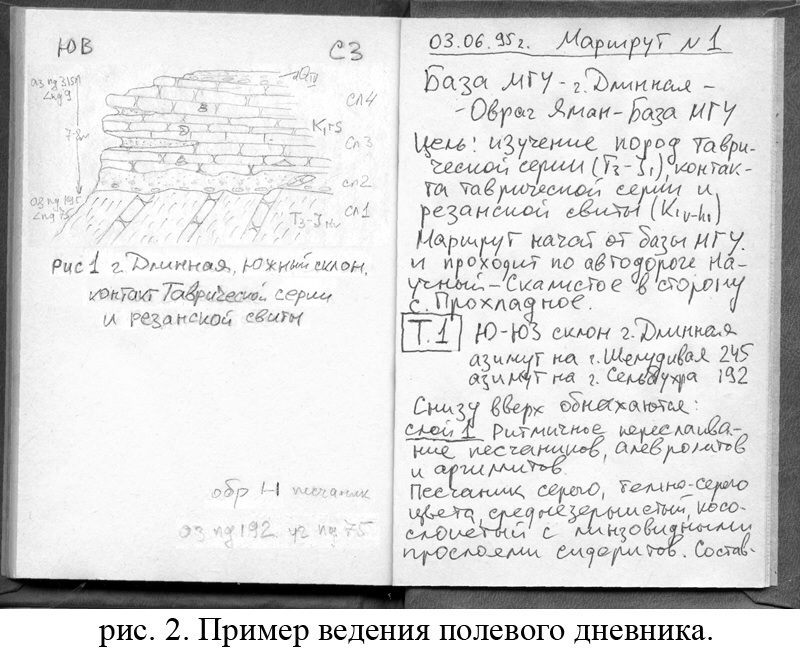 ЮВ
СЗ
аз пд 315п
∠пд 9
аQIV
сл4
7-8м
K1 r-s
сл3
аз пд 195
∠пд 75
сл2
T3-J1
сл1
Рис 1 г. Длинная, южный склон,
контакт Таврической серии
и резанской свиты
обр 1-1 песчаник
аз пд 192 уг пд 75
03.06.95г. Маршрут N1
База МГУ - г. Длинная -
- Овраг Яман - База МГУ
Цель: изучение пород Таври-
ческой серии (T3-J1), контак-
та таврической серии и
резанской свиты (K1v-h1)
Маршрут начат от базы МГУ.
и проходит по автодороге На-
учный - Скалистое в сторону
с. Прохладное.
Т.1 Ю-ЮЗ склон г. Длинная
азимут на г. Шелудивая 245
азимут на г. Сельбухра 192
Снизу вверх обнажаются:
слой 1 Ритмичное переслаива-
ние песчаников, алевролитов
и аргиллитов.
Песчаник серого, темно-серого
цвета, среднезернистый, косо-
слоистый с линзовидными
прослоями сидеритов. Состав-
рис. 2. Пример ведения полевого дневника.